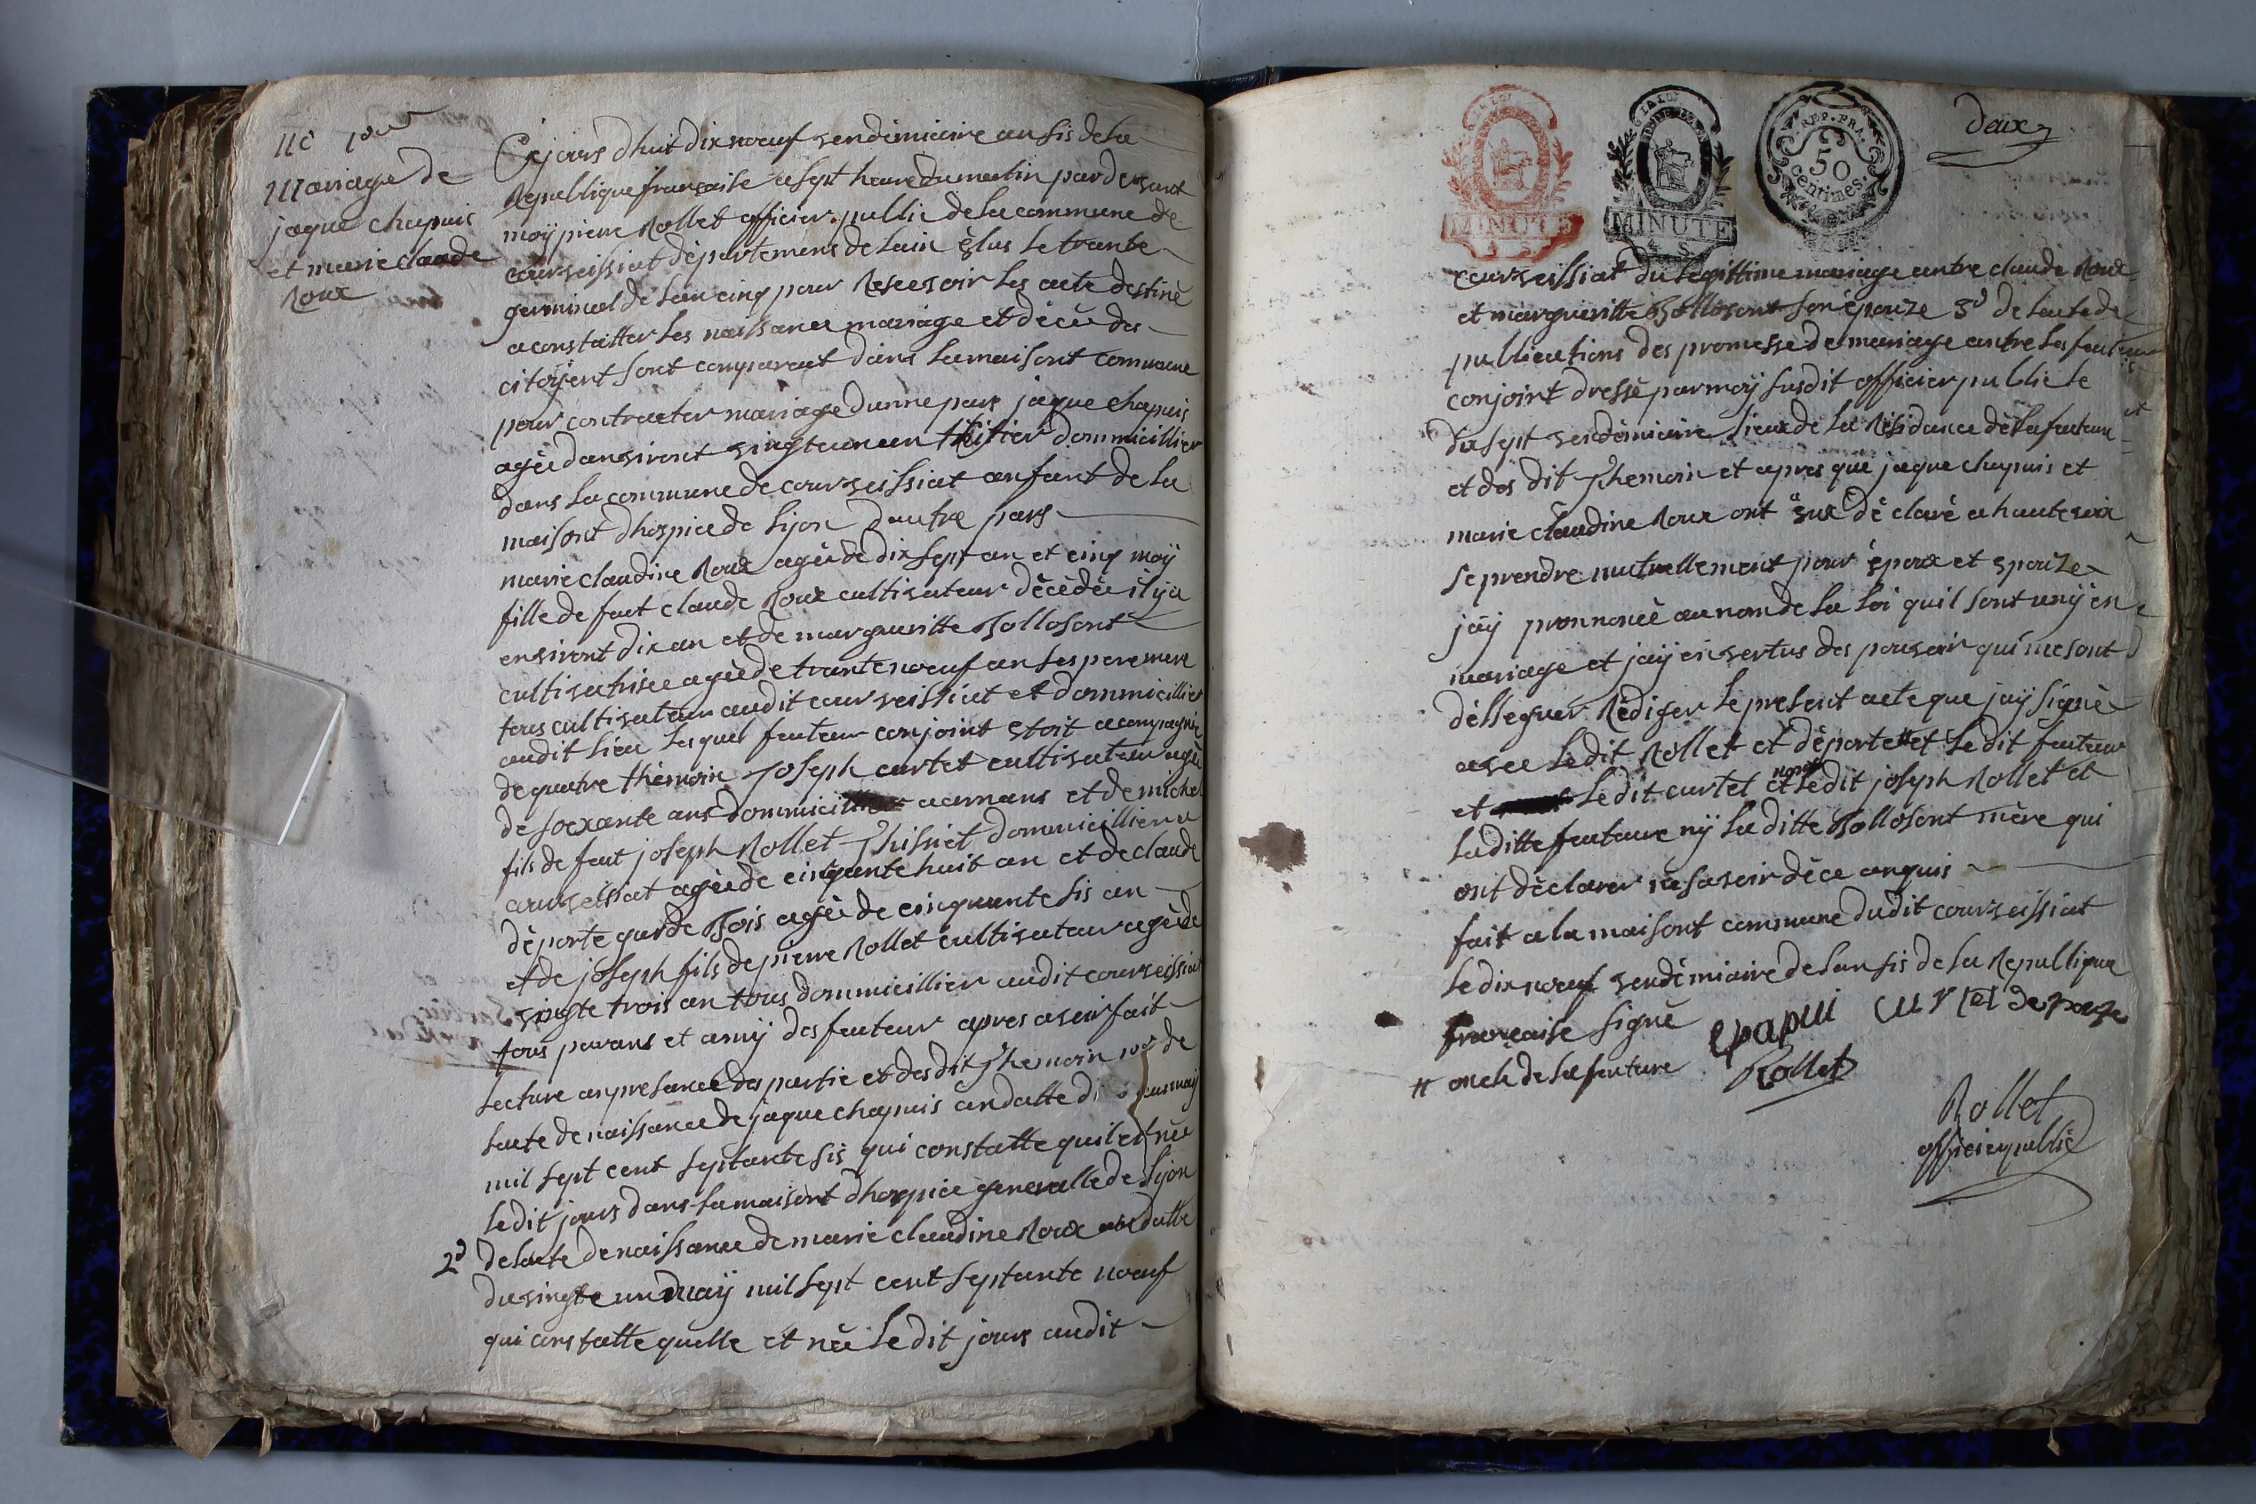 Mariage de
jaque chapuis
et marie claude
Roux
Cejours dhuit dix noeuf vendémiaire an sis de la
Republique française a sept heure du matin par devant
moÿ pierre Rollet officier public de la commune de
courveissiat départemens de lain élus le trante
germinal de lan cinq pour Resevoir les acte destiné
a constatter les naissance mariage et décè des
citoÿent sont comparent dans la maisont commune
pour contracter mariage dunne pars jaque chapuis
agée danviront vingte un an thisier dommicillier
dans la commune de courveissiat anfant de la
maisont dhospice de lijon dautre pars
marie claudine Roux agée de dix sept an et cinq moÿ
fille de feut claude Roux cultivateur décèdée il ÿ a
environt dix an et de margueritte Bollosont
cultivatrise agée de trante noeuf an les pere mere
tous cultivateur audit courveissiat et dommicillier
audit lieu lesquel feuteur conjoint etoit acompagnie
de quatre thémoin joseph curtet cultivateur agée
de soexante ans dommicillier a arnans et de michel
fils de feut joseph Rollet thisiet dommicillier a
courveissiat agée de cinquante huit an et de claude
déporte garde Bois agée de cinquante sis an
et de joseph fils de pierre Rollet cultivateur agée de
vingte trois an tous dommicillier audit courveissiat
tous parans et amÿ des feuteur apres avoir fait
lecture an presance des partie et des dit themoin 1º de
lacte de naissance de jaque chapuis an datte
mil sept cent septante sis qui constatte quil et née
ledit jours dans la maisont dhospice generalle de lijon
2º de lacte de naissance de marie claudine Roux datte
du vingte un maÿ mil sept cent septante noeuf
qui constatte quelle et née ledit jours audit
deux
LA LOI
MINUTE
LA LOI
MINUTE
REP. FRA.
50
centimes.
courveissiat du legittime mariage entre claude Roux
et margueritte Bollosont son épouze 3º de lacte de
publications des promesse de mariage entre les feuteur
conjoint dressé par moÿ susdit officier public le
du sept vendémiaire lieux de la Résidance de la feuteure
et des dit themoin et apres que jaque chapuis et
marie claudine Roux ont déclaré a haute voix
se prendre mutuellement pour époux et epouze
jaÿ pronnoncé au nom de la loi quil sont unÿ en
mariage et jaÿ en vertus des pouvoir qui me sont
délleguer Rédiger le present acte que jaÿ signé
avec ledit Rollet et déporte et ledit feuteur
et ledit curtet et nont ledit joseph Rollet et
laditte feuteure nÿ laditte Bollosont mère qui
ont déclarer ne savoir déce anquis
fait a la maisont commune dudit courveissiat
le dix noeuf vendémiaire de lan sis de la Republique
française signé epapui curtet deporte
# oncle de la feuture Rollet
Rollet
officier public